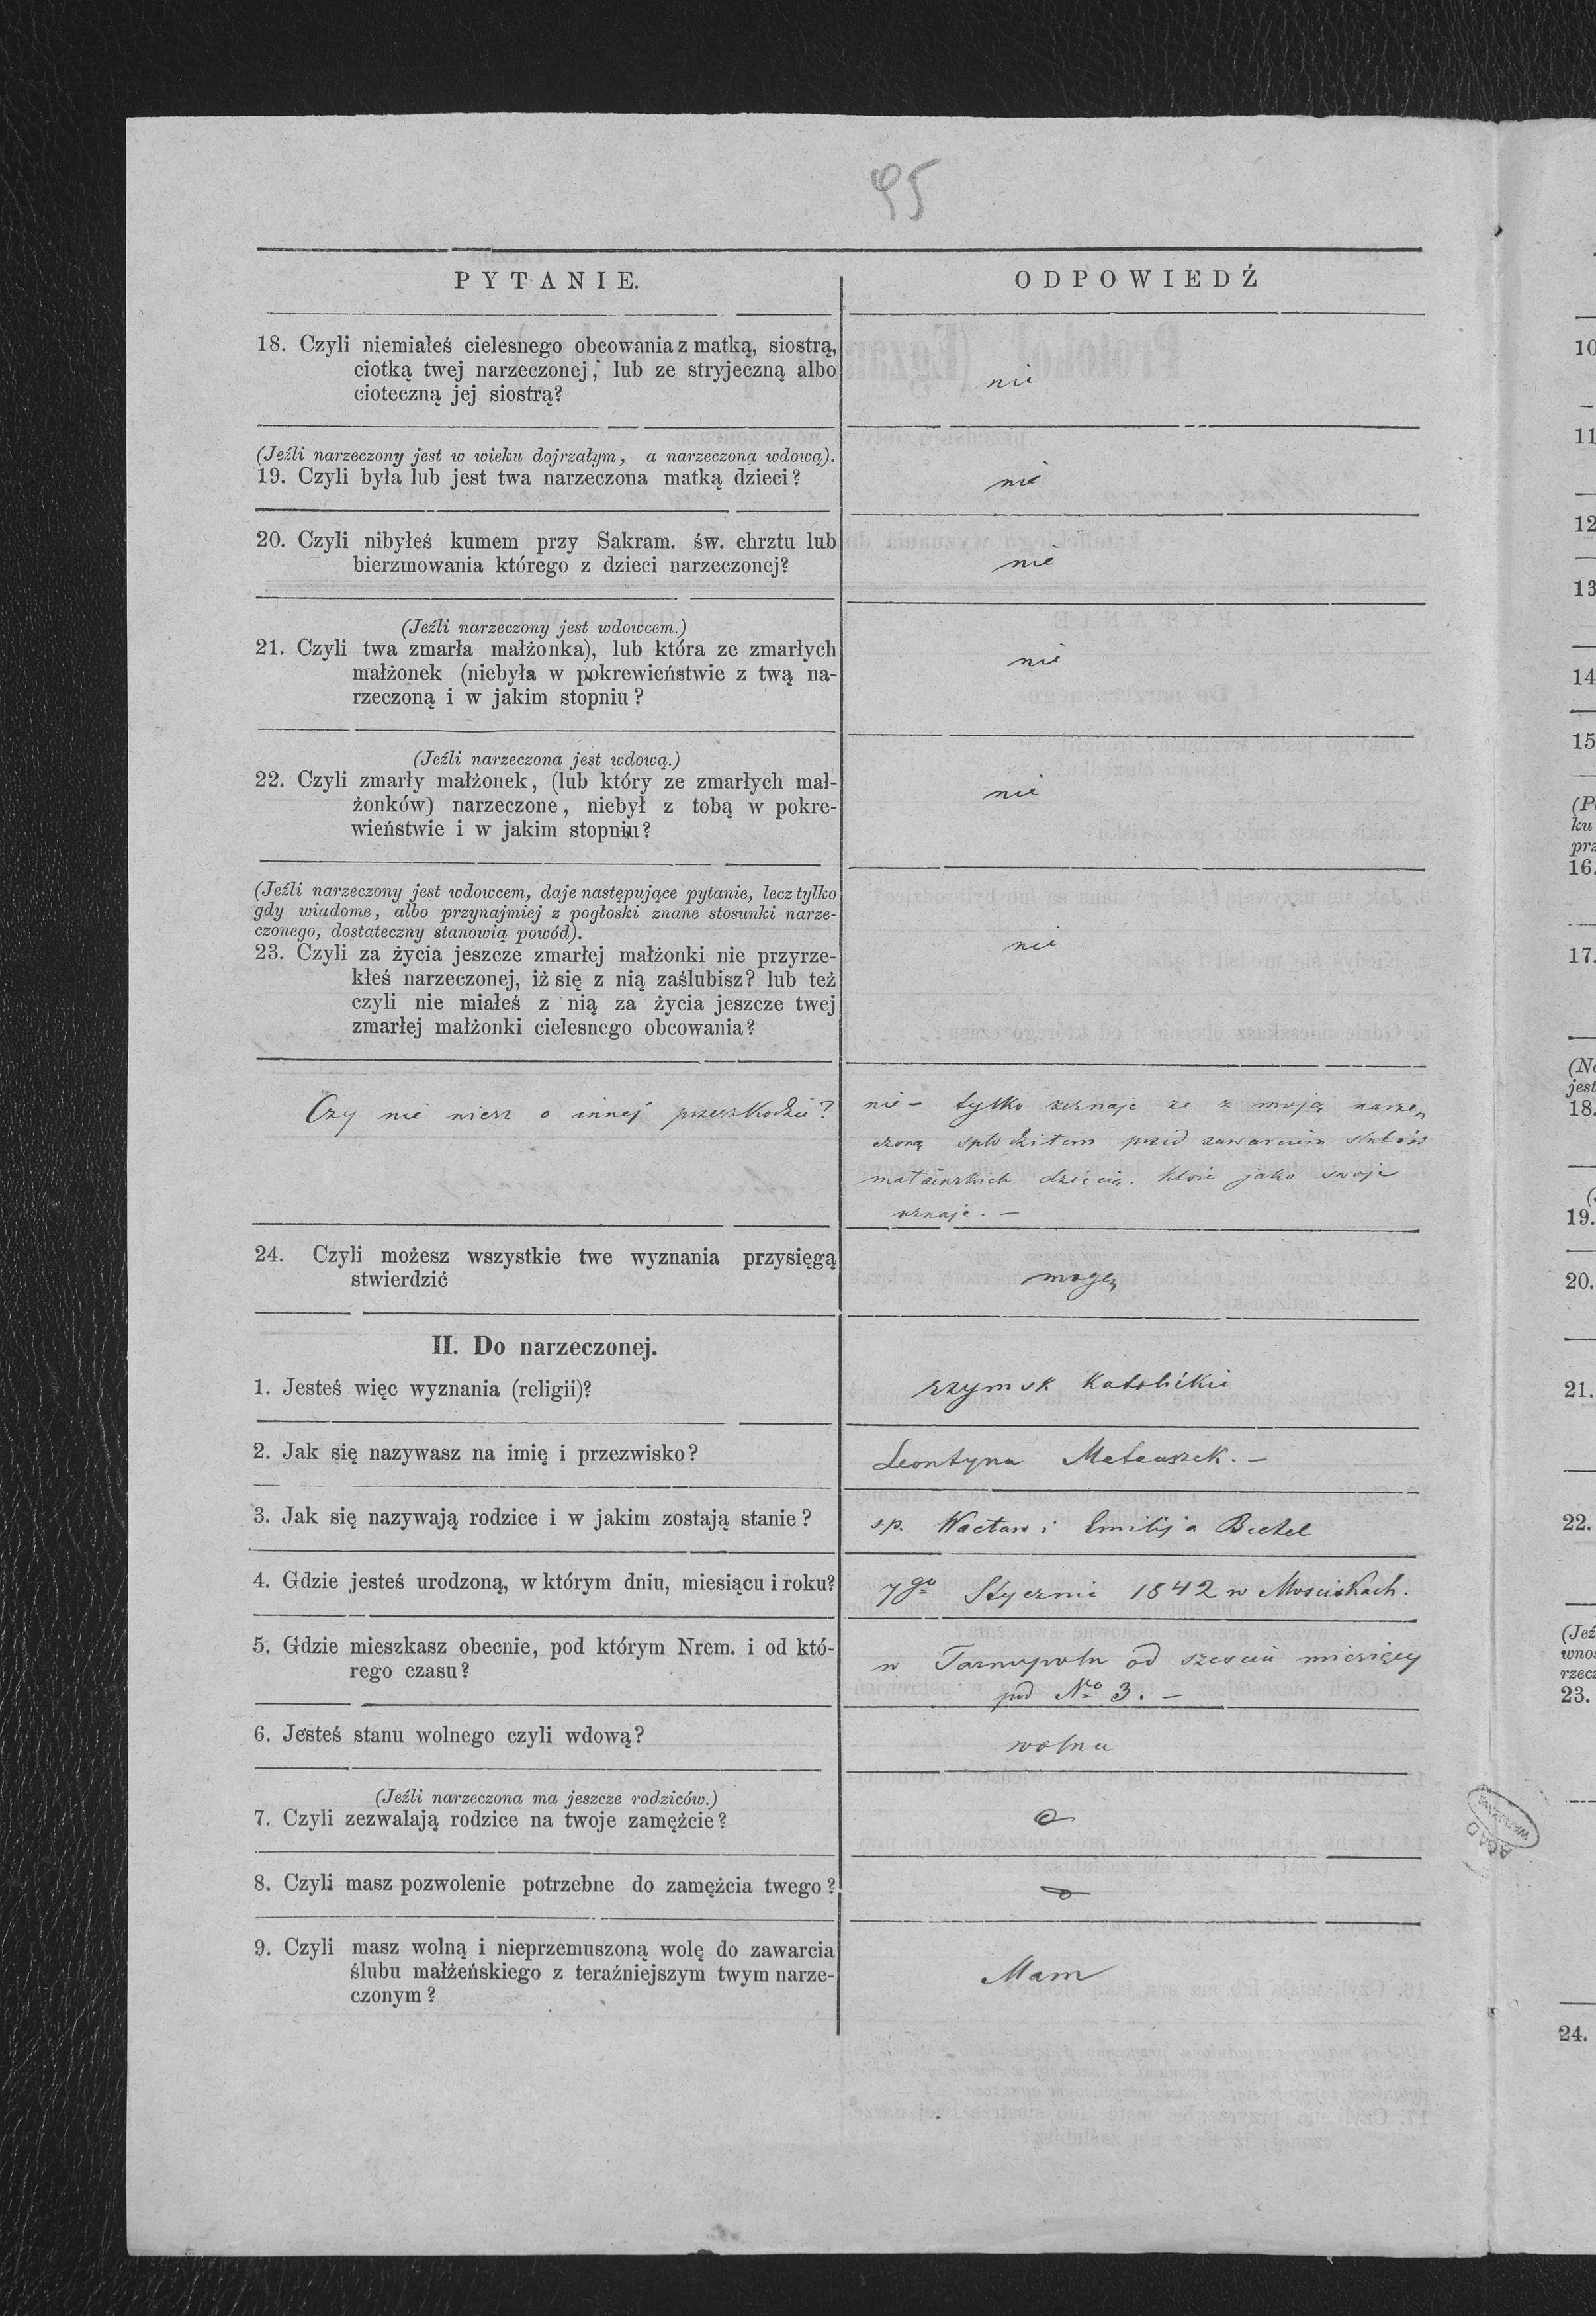 95
PYTANIE.
ODPOWIEDŹ
18. Czyli niemiałeś cielesnego obcowania z matką, siostrą,
ciotką twej narzeczonej, lub ze stryjeczną albo
cioteczną jej siostrą?
nie
(Jeźli narzeczony jest w wieku dojrzałym, a narzeczona wdową).
19. Czyli była lub jest twa narzeczona matką dzieci?
nie
20. Czyli nibyłeś kumem przy Sakram. św. chrztu lub
bierzmowania którego z dzieci narzeczonej?
nie
(Jeźli narzeczony jest wdowcem.)
21. Czyli twa zmarła małżonka), lub która ze zmarłych
małżonek (niebyła w pokrewieństwie z twą na-
rzeczoną i w jakim stopniu?
nie
(Jeźli narzeczona jest wdową.)
22. Czyli zmarły małżonek, (lub który ze zmarłych mał-
żonków) narzeczone, niebył z tobą w pokre-
wieństwie i w jakim stopniu?
nie
(Jeźli narzeczony jest wdowcem, daje następujące pytanie, lecz tylko
gdy wiadome, albo przynajmiej z pogłoski znane stosunki narze-
czonego, dostateczny stanowią powód).
23. Czyli za życia jeszcze zmarłej małżonki nie przyrze-
kłeś narzeczonej, iż się z nią zaślubisz? lub też
czyli nie miałeś z nią za życia jeszcze twej
zmarłej małżonki cielesnego obcowania?
nie
Czy nie wiesz o innej przeszkodzie?
nie – tylko zeznaje że z moją narze,
czoną spłodziłem przed zawarciem ślubów
małżeńskich dziecię, które jako swoje
uznaje. –
24. Czyli możesz wszystkie twe wyznania przysięgą
stwierdzić
mogę
II. Do narzeczonej.
1. Jesteś więc wyznania (religii)?
rzymsk katolickie
2. Jak się nazywasz na imię i przezwisko?
Leontyna Mataaszek. –
3. Jak się nazywają rodzice i w jakim zostają stanie?
s.p. Wacław i Emilija
4. Gdzie jesteś urodzoną, w którym dniu, miesiącu i roku?
7go Stycznia 1842 w Mosciskach.
5. Gdzie mieszkasz obecnie, pod którym Nrem. i od któ-
rego czasu?
w Tarnopolu od sześciu miesięcy
pod No 3. –
6. Jesteś stanu wolnego czyli wdową?
wolna
(Jeźli narzeczona ma jeszcze rodziców.)
7. Czyli zezwalają rodzice na twoje zamężcie?
8. Czyli masz pozwolenie potrzebne do zamężcia twego?
9. Czyli masz wolną i nieprzemuszoną wolę do zawarcia
ślubu małżeńskiego z teraźniejszym twym narze-
czonym?
Mam
10
11
12
13
14
15
(P
ku
prz
16.
17.
(Ne
jest
18.
(
19.
20.
21.
22.
(Jeź
wno
rzec
23.
24.
AGAD
WARSZAWA